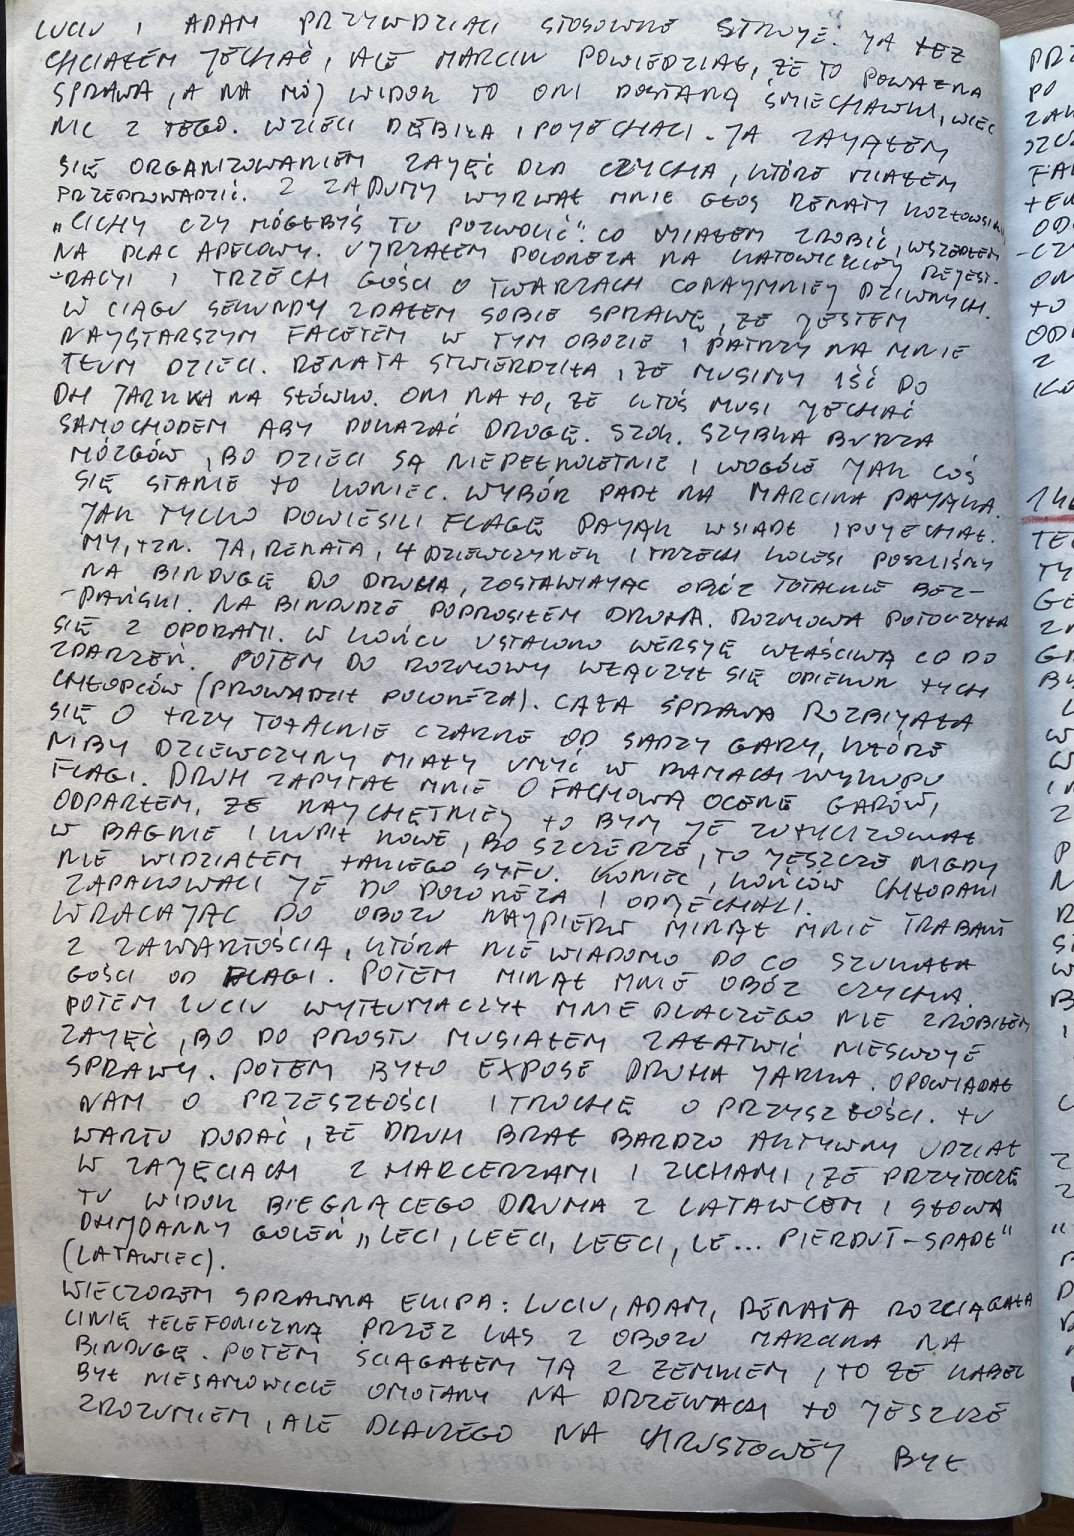 LUCIU I ADAM PRZYWDZIALI STOSOWNE STROJE. JA TEŻ
CHCIAŁEM JECHAĆ, ALE MARCIN POWIEDZIAŁ, ŻE TO POWAŻNA
SPRAWA, A NA MÓJ WIDOK TO ONI DOSTANĄ ŚMIECHAWKI, WIĘC
NIC Z TEGO. WZIELI DĘBILA I POJECHALI. JA ZAJĄŁEM
SIĘ ORGANIZOWANIEM ZAJĘĆ DLA CZYCHA, KTÓRE MIAŁEM
PRZEPROWADZIĆ. Z ZADUMY WYRWAŁ MNIE GŁOS RENATY KOZŁOWSKIEJ
„CICHY CZY MÓGŁBYŚ TU POZWOLIĆ". CO MIAŁEM ZROBIĆ, WSZEDŁEM
NA PLAC APELOWY. UJRZAŁEM POLONEZA NA KATOWICKIEJ REJEST-
-RACJI I TRZECH GOŚCI O TWARZACH CONAJMNIEJ DZIWNYCH.
W CIĄGU SEKUNDY ZDAŁEM SOBIE SPRAWĘ, ŻE JESTEM
NAJSTARSZYM FACETEM W TYM OBOZIE I PATRZY NA MNIE
TŁUM DZIECI. RENATA STWIERDZIŁA, ŻE MUSIMY IŚĆ DO
DH JARKA NA SŁÓWKO. ONI NA TO, ŻE KTOŚ MUSI JECHAĆ
SAMOCHODEM ABY POKAZAĆ DROGĘ. SZOK. SZYBKA BURZA
MÓZGÓW, BO DZIECI SĄ NIEPEŁNOLETNIE I WOGÓLE JAK COŚ
SIĘ STANIE TO KONIEC. WYBÓR PADŁ NA MARCINA PAJĄKA.
JAK TYLKO POWIESILI FLAGĘ PAJĄK WSIADŁ I POJECHAŁ.
MY, TZN. JA, RENATA, 4 DZIEWCZYNEK I TRZECH KOLESI POSZLIŚMY
NA BINDUGĘ DO DRUHA, ZOSTAWIAJĄC OBÓZ TOTALNIE BEZ-
-PAŃSKI. NA BINDUDZE POPROSIŁEM DRUHA. ROZMOWA POTOCZYŁA
SIĘ Z OPORAMI. W KOŃCU USTALONO WERSJĘ WŁAŚCIWĄ CO DO
ZDARZEŃ. POTEM DO ROZMOWY WŁĄCZYŁ SIĘ OPIEKUN TYCH
CHŁOPCÓW (PROWADZIŁ POLONEZA). CAŁA SPRAWA ROZBIJAŁA
SIĘ O TRZY TOTALNIE CZARNE OD SADZY GARY, KTÓRE
NIBY DZIEWCZYNY MIAŁY UMYĆ W RAMACH WYKUPU
FLAGI. DRUH ZAPYTAŁ MNIE O FACHOWĄ OCENĘ GARÓW,
ODPARŁEM, ŻE NAJCHĘTNIEJ TO BYM JE ZUTYLIZOWAŁ
W BAGNIE I KUPIŁ NOWE, BO SZCZERZE, TO JESZCZE NIGDY
NIE WIDZIAŁEM TAKIEGO SYFU. KONIEC, KOŃCÓW CHŁOPAKI
ZAPAKOWALI JE DO POLONEZA I ODJECHALI.
WRACAJĄC DO OBOZU NAJPIERW MINĄŁ MNIE TRABANT
Z ZAWARTOŚCIĄ, KTÓRA NIE WIADOMO DO CO SZUKAŁA
GOŚCI OD FLAGI. POTEM MINĄŁ MNIE OBÓZ CZYCHA.
POTEM LUCIU WYTŁUMACZYŁ MNIE DLACZEGO NIE ZROBIŁEM
ZAJĘĆ, BO DO PROSTU MUSIAŁEM ZAŁATWIĆ NIESWOJE
SPRAWY. POTEM BYŁO EXPOSE DRUHA JARKA. OPOWIADAŁ
NAM O PRZESZŁOŚCI I TROCHĘ O PRZYSZŁOŚCI. TU
WARTO DODAĆ, ŻE DRUH BRAŁ BARDZO AKTYWNY UDZIAŁ
W ZAJĘCIACH Z HARCERZAMI I ZUCHAMI, ŻE PRZYTOCZĘ
TU WIDOK BIEGNĄCEGO DRUHA Z LATAWCEM I SŁOWA
DHNY DANNY GOLEŃ „LECI, LEECI, LEECI, LE... PIERDUT-SPADŁ"
(LATAWIEC).
WIECZOREM SPRAWNA EKIPA: LUCIU, ADAM, RENATA ROZCIĄGAŁA
LINIĘ TELEFONICZNĄ PRZEZ LAS Z OBOZU MARCINA NA
BINDUGĘ. POTEM ŚCIĄGAŁEM JĄ Z ZENKIEM, TO ŻE KABEL
BYŁ NIESAMOWICIE OMOTANY NA DRZEWACH TO JESZCZE
ZROZUMIEM, ALE DLACZEGO NA CHRUSTOWEJ BYŁ